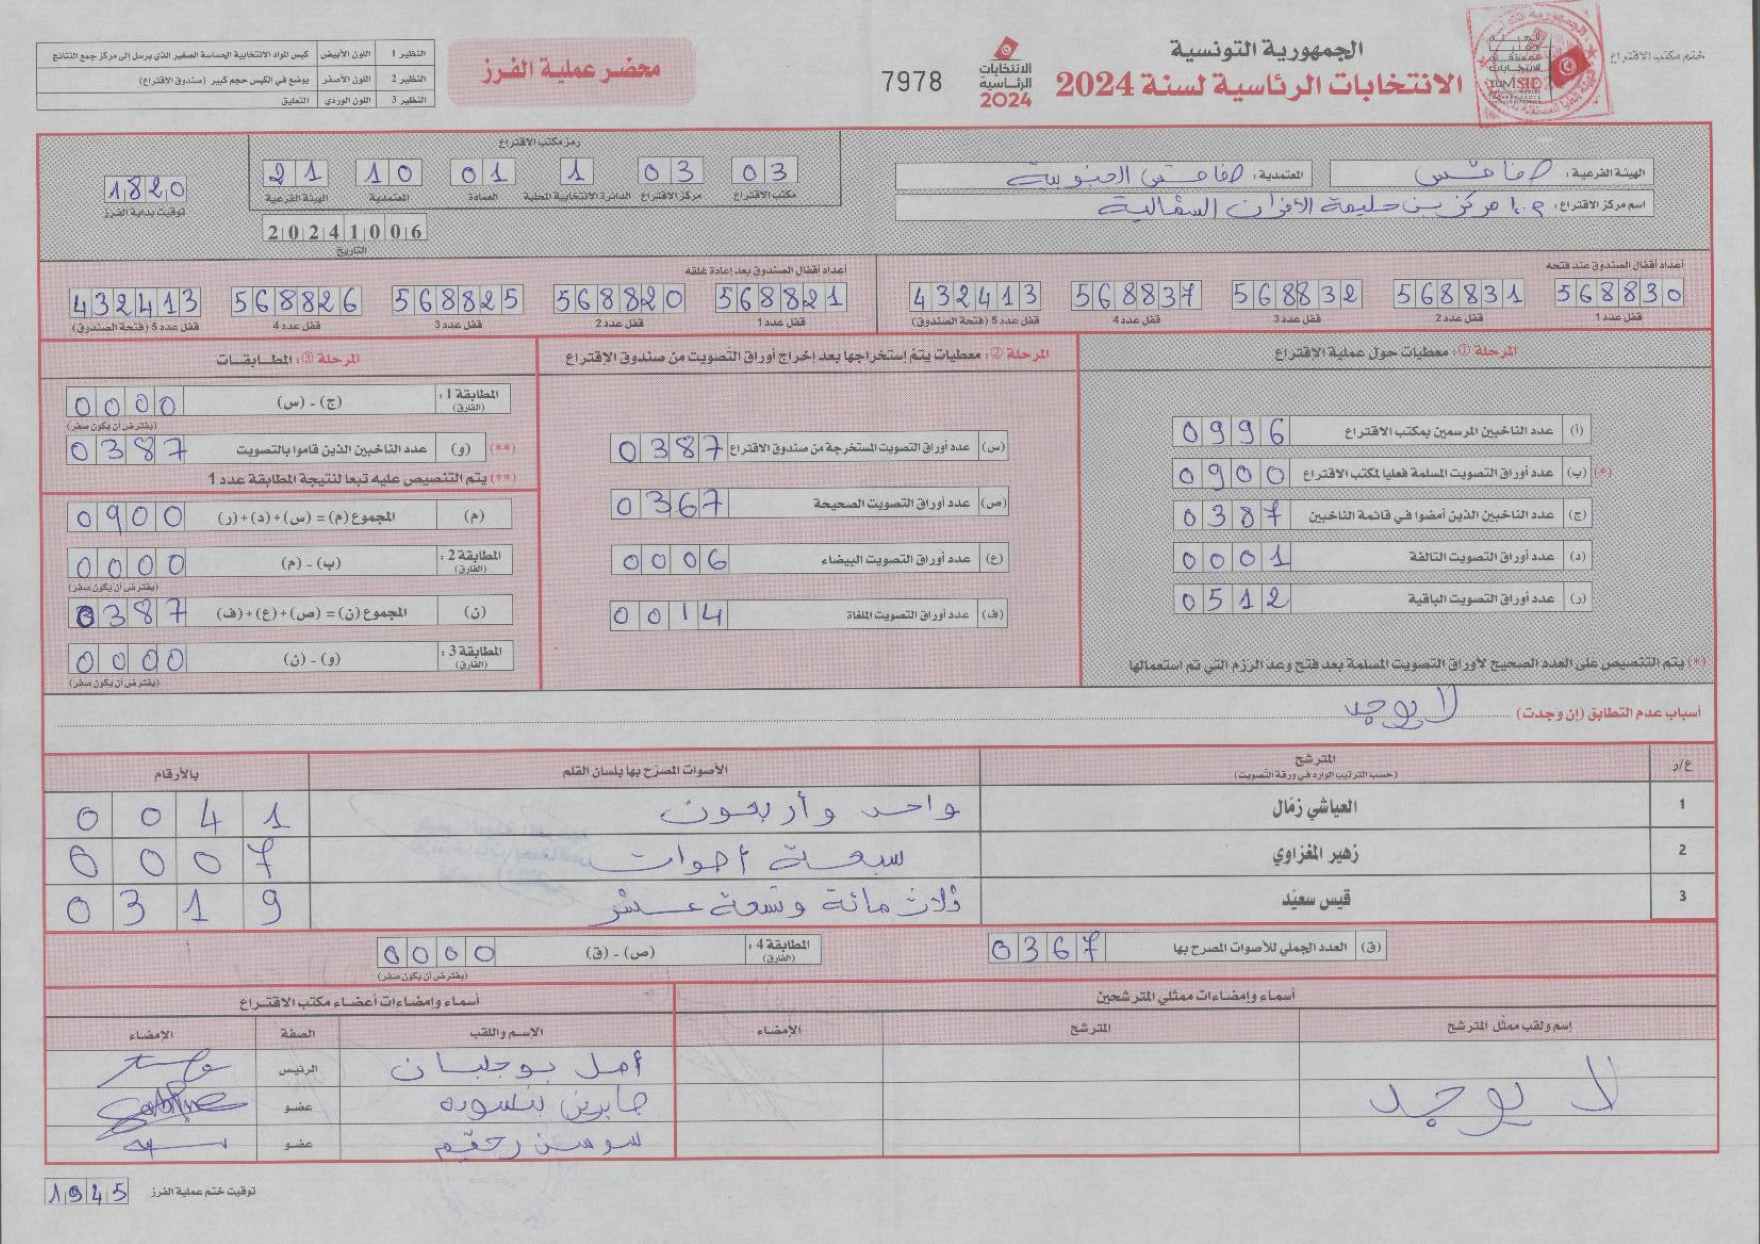 ختم مكتب الاقتراع
الجمهورية التونسية
الانتخابات الرئاسية لسنة 2024
الانتخابات
الرئاسية
2024
7978
محضر عملية الفرز
النظير 1 اللون الأبيض كيس المواد الانتخابية الحساسة الصغير الذي يرسل إلى مركز جمع النتائج
النظير 2 اللون الأصفر يوضع في الكيس حجم كبير (صندوق الاقتراع)
النظير 3 اللون الوردي التعليق
الهيئة الفرعية: صفاقس
المعتمدية: صفاقس الجنوبية
اسم مركز الاقتراع: م.ا مركز بن حليمة الأفران الشمالية
رمز مكتب الاقتراع
03 03 1 01 10 21
مكتب الاقتراع مركز الاقتراع الدائرة الانتخابية المحلية العمادة المعتمدية الهيئة الفرعية
20241006
التاريخ
1820
توقيت بداية الفرز
أعداد أقفال الصندوق عند فتحه
568830 568831 568832 568837 432413
قفل عدد 1 قفل عدد 2 قفل عدد 3 قفل عدد 4 قفل عدد 5 (فتحة الصندوق)
أعداد أقفال الصندوق بعد إعادة غلقه
568821 568820 568825 568826 432413
قفل عدد 1 قفل عدد 2 قفل عدد 3 قفل عدد 4 قفل عدد 5 (فتحة الصندوق)
المرحلة 1: معطيات حول عملية الاقتراع
(أ) عدد الناخبين المرسمين بمكتب الاقتراع 0996
(*) (ب) عدد أوراق التصويت المسلمة فعليا لمكتب الاقتراع 0900
(ج) عدد الناخبين الذين أمضوا في قائمة الناخبين 0387
(د) عدد أوراق التصويت التالفة 0001
(ر) عدد أوراق التصويت الباقية 0512
(*) يتم التنصيص على العدد الصحيح لأوراق التصويت المسلمة بعد فتح وعد الرزم التي تم استعمالها
المرحلة 2: معطيات يتم إستخراجها بعد إخراج أوراق التصويت من صندوق الاقتراع
(س) عدد أوراق التصويت المستخرجة من صندوق الاقتراع 0387
(ص) عدد أوراق التصويت الصحيحة 0367
(ع) عدد أوراق التصويت البيضاء 0006
(ف) عدد أوراق التصويت الملغاة 0014
المرحلة 3: المطابقات
المطابقة 1: (الفارق) (ج) - (س) 0000
(يفترض أن يكون صفر)
(**) (و) عدد الناخبين الذين قاموا بالتصويت 0387
(**) يتم التنصيص عليه تبعا لنتيجة المطابقة عدد 1
(م) المجموع (م) = (س)+(د)+(ر) 0900
المطابقة 2: (الفارق) (ب) - (م) 0000
(يفترض أن يكون صفر)
(ن) المجموع (ن) = (ص)+(ع)+(ف) 0387
المطابقة 3: (الفارق) (و) - (ن) 0000
(يفترض أن يكون صفر)
أسباب عدم التطابق (إن وجدت) لا يوجد
ع/ر المترشح الأصوات المصرح بها بلسان القلم بالأرقام
(حسب الترتيب الوارد في ورقة التصويت)
1 العياشي زمّال واحد وأربعون 0041
2 زهير المغزاوي سبعة أصوات 0007
3 قيس سعيّد ثلاث مائة وتسعة عشر 0319
(ق) العدد الجملي للأصوات المصرح بها 0367
المطابقة 4: (الفارق) (ص) - (ق) 0000
(يفترض أن يكون صفر)
أسماء وإمضاءات ممثلي المترشحين
إسم ولقب ممثّل المترشح المترشح الإمضاء
لا يوجد
أسماء وإمضاءات أعضاء مكتب الاقتراع
الاسم واللقب الصفة الإمضاء
أمل بوجلبان الرئيس
صابرين بنسوده عضو
سوسن رحيّم عضو
توقيت ختم عملية الفرز 1945